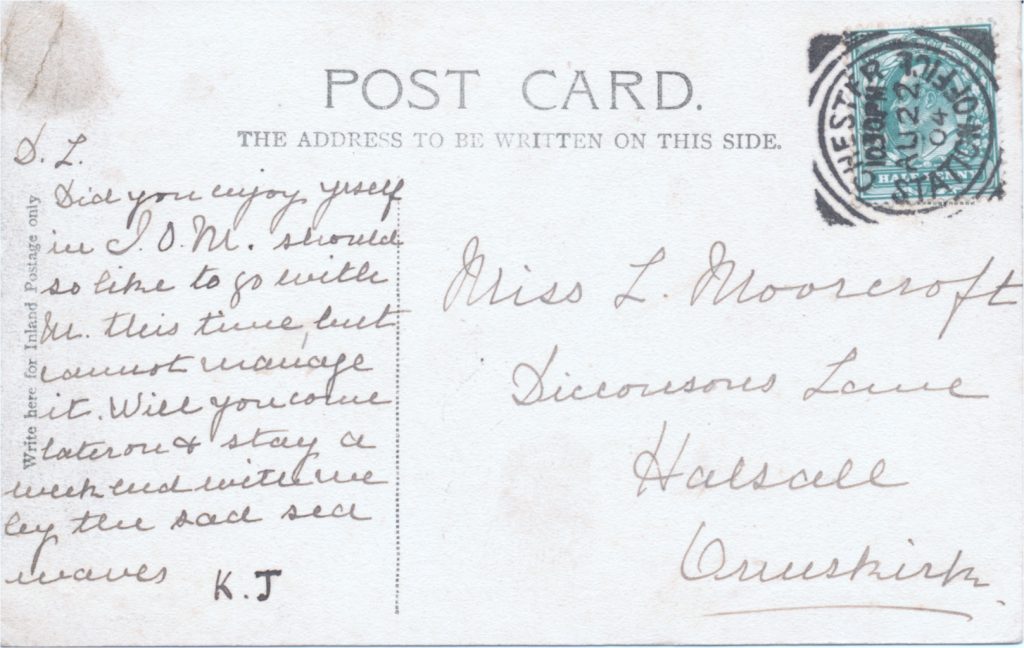 POST CARD.
THE ADDRESS TO BE WRITTEN ON THIS SIDE.
Write here for Inland Postage only
D. L.
Did you enjoy yrself
in I.O.M. should
so like to go with
M. this time, but
cannot manage
it. Will you come
later on & stay a
week end with me
by the sad sea
waves
K.J
CHESTER STATION OFFICE
1030PM
AU 22
04
HALFPENNY
Miss L. Moorcroft
Dicconsons Lane
Halsall
Ormskirk.